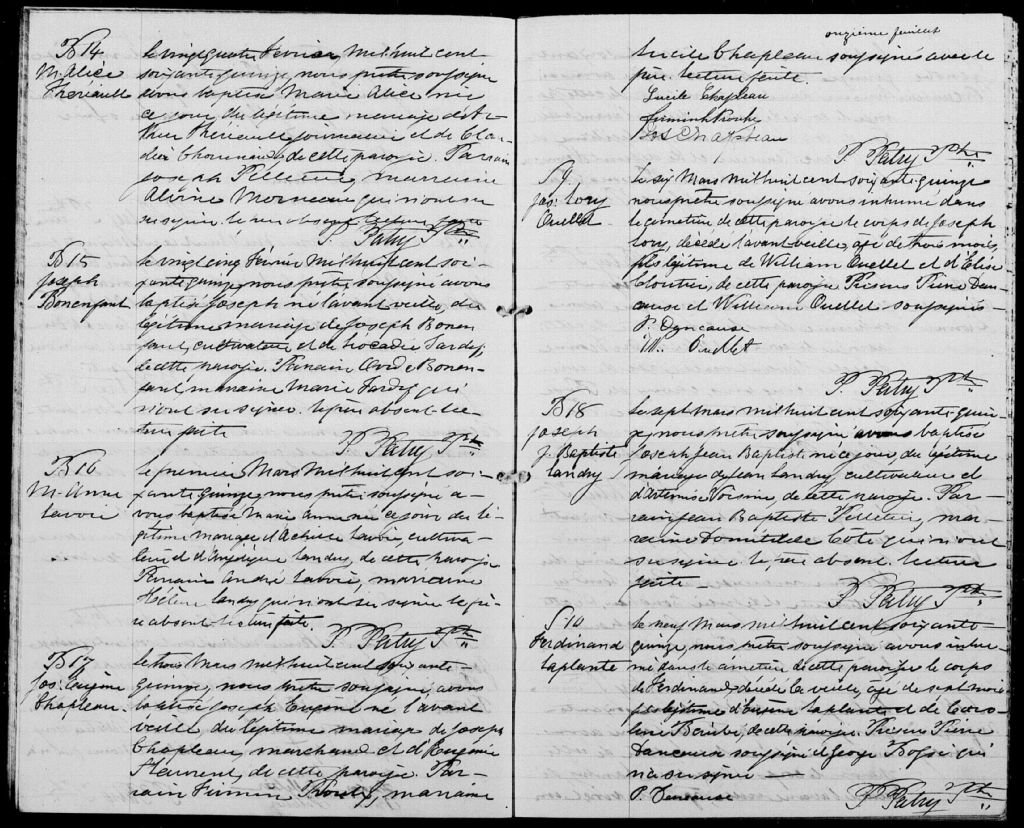 B 14
M. Alice
Theriault
le vingt quatre Fevrier, Mil huit cent
soixante quinze, nous prêtre soussigné
avons baptisé Marie Alice née
ce jour du légitime mariage d'
Theriault, journalier et de
de cette paroisse. Parrain
Joseph Pelletier, marraine
Alvine Morneau qui n'ont su
signer. le père absent lecture faite
P. Patry Ptre
B 15
Joseph
Bonenfant
le vingt cinq Février Mil huit cent soi-
xante quinze, nous prêtre soussigné avons
baptisé Joseph né l'avant veille, du
légitime mariage de Joseph Bonen-
fant, cultivateur et de Léocadie Tardif,
de cette paroisse. Parrain Bonen-
fant, marraine Marie Tardif qui
n'ont su signer. le père absent lec-
ture faite
P. Patry Ptre
B 16
M. Anne
Lavoie
le premier Mars Mil huit cent soi-
xante quinze, nous prêtre soussigné a-
vons baptisé Marie Anne née ce jour du lé-
gitime mariage d'Achille Lavoie, cultiva-
teur et d'Angélique Landry, de cette paroisse
Parrain André Lavoie, marraine
Hélène Landry qui n'ont su signer le pè-
re absent lecture faite.
P. Patry Ptre
B 17
Jos: Eugène
Chapleau.
le trois Mars mil huit cent soixante-
quinze, nous prêtre soussigné, avons
baptisé Joseph né l'avant
veille, du légitime mariage de Joseph
Chapleau, marchand et d'Eugenie
de cette paroisse. Par-
rain Firmin Proulx, marraine
onzième feuillet
Lucile Chapleau soussignés avec le
père. lecture faite
Lucile Chapleau
Firmin Proulx
Jos Chapleau
P. Patry Ptre
S 9.
Jos: Lory
Ouellet
le six Mars mil huit cent soixante quinze
nous prêtre soussigné avons inhumé dans
le cimetière de cette paroisse le corps de Joseph
Lory, décédé l'avant veille, agé de trois mois,
fils légitime de William Ouellet et d'Elise
Cloutier, de cette paroisse Présens Pierre Dan-
cause et William Ouellet soussignés
P. Dancause
W. Ouellet
P. Patry Ptre
B 18
Joseph
J. Baptiste
Landry
le sept Mars mil huit cent soixante quin-
ze, nous prêtre soussigné avons baptisé
Joseph Jean Baptiste né ce jour du légitime
mariage de Jean Landry cultivateur et
d'Artémise Voisine de cette paroisse. Par-
rain Jean Baptiste Pelletier, mar-
raine Domitilde Coté qui n'ont
su signer. le père absent. lecture
faite
P. Patry Ptre
S 10
Ferdinand
Laplante
le neuf Mars mil huit cent soixante
quinze, nous prêtre soussigné avons inhu-
mé dans le cimetière de cette paroisse le corps
de Ferdinand, décédé la veille, agé de sept mois
fils légitime d' Laplante et de Caro-
line de cette paroisse. Présens Pierre
Dancause soussigné et George Bossé qui
n'a su signer
P. Dancause
P. Patry Ptre